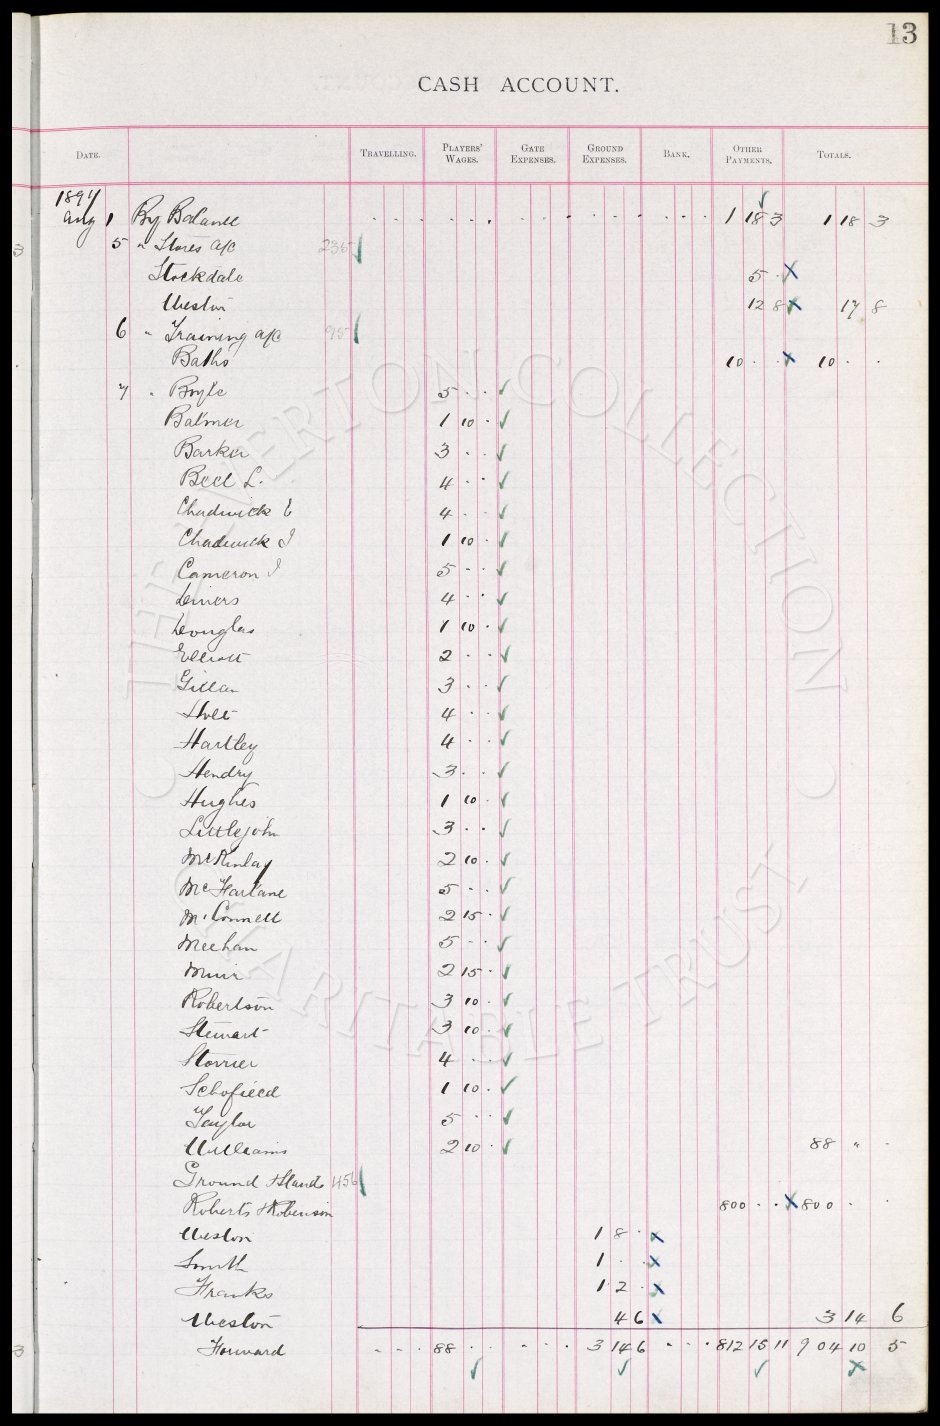 13
CASH ACCOUNT.
DATE. TRAVELLING. PLAYERS' WAGES. GATE EXPENSES. GROUND EXPENSES. BANK. OTHER PAYMENTS. TOTALS.
1897
Aug 1 By Balance 1 18 3 1 18 3
5 " Stores a/c 235
Stockdale 5 .
Weston 12 8 17 8
6 " Training a/c 95
Baths 10 . . 10 . .
7 " Boyle 5 . .
Balmer 1 10 .
Barker 3 . .
Bell L. 4 . .
Chadwick E 4 . .
Chadwick J 1 10 .
Cameron J 5 . .
Divers 4 . .
Douglas 1 10 .
Elliott 2 . .
Gillan 3 . .
Holt 4 . .
Hartley 4 . .
Hendry 3 . .
Hughes 1 10 .
Littlejohn 3 . .
McKinlay 2 10 .
McFarlane 5 . .
McConnell 2 15 .
Meehan 5 . .
Muir 2 15 .
Robertson 3 10 .
Stewart 3 10 .
Storrier 4 . .
Schofield 1 10 .
Taylor 5 . .
Williams 2 10 . 88 " .
Ground & Stands 456
Roberts & Robinson 800 . . 800 . .
Weston 1 8 .
Smith 1 . .
Franks 1 2 .
Weston 4 6 3 14 6
Forward . . . 88 . . . . . 3 14 6 . . . 812 15 11 904 10 5
THE EVERTON COLLECTION
CHARITABLE TRUST